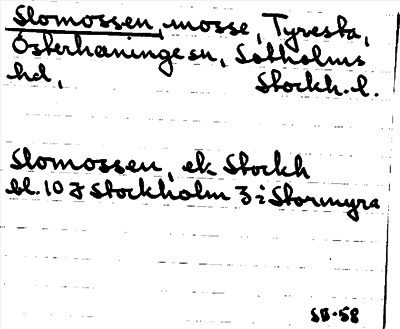 Slomossen, mosse, Tyresta,
Österhaninge sn, Sotholms
hd, Stockh. l.
Slomossen, ek Stockh
bl. 10 J Stockholm 3 i Stormyra
SB·58